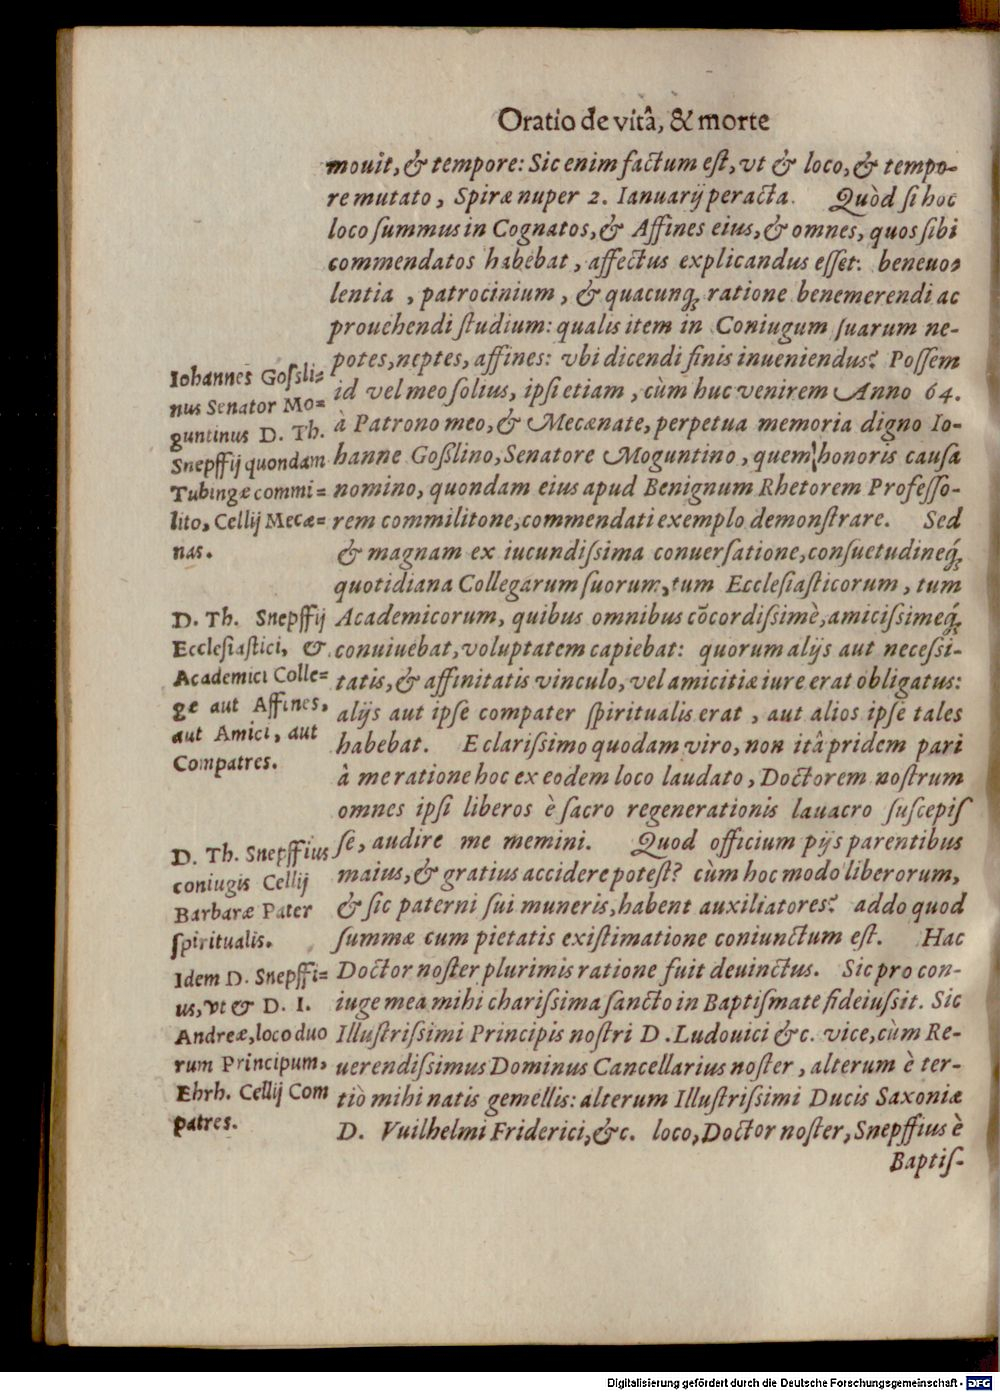 Oratio de vitâ, & morte
mouit, & tempore: Sic enim factum est, vt & loco, & tempo-
re mutato, Spiræ nuper 2. Ianuarij peracta. Quòd si hoc
loco summus in Cognatos, & Affines eius, & omnes, quos sibi
commendatos habebat, affectus explicandus esset: beneuo-
lentia, patrocinium, & quacunq; ratione benemerendi ac
prouehendi studium: qualis item in Coniugum suarum ne-
potes, neptes, affines: vbi dicendi finis inueniendus? Possem
id vel meo solius, ipsi etiam, cùm huc venirem Anno 64.
à Patrono meo, & Mecænate, perpetua memoria digno Io-
hanne Goßlino, Senatore Moguntino, quem honoris causa
nomino, quondam eius apud Benignum Rhetorem Professo-
rem commilitone, commendati exemplo demonstrare. Sed
& magnam ex iucundissima conuersatione, consuetudineq́;
quotidiana Collegarum suorum, tum Ecclesiasticorum, tum
Academicorum, quibus omnibus cõcordissimè, amicissimeq́;
conuiuebat, voluptatem capiebat: quorum alijs aut necessi-
tatis, & affinitatis vinculo, vel amicitiæ iure erat obligatus:
alijs aut ipse compater spiritualis erat, aut alios ipse tales
habebat. E clarissimo quodam viro, non itâ pridem pari
à me ratione hoc ex eodem loco laudato, Doctorem nostrum
omnes ipsi liberos è sacro regenerationis lauacro suscepis
se, audire me memini. Quod officium pijs parentibus
maius, & gratius accidere potest? cùm hoc modo liberorum,
& sic paterni sui muneris, habent auxiliatores? addo quod
summæ cum pietatis existimatione coniunctum est. Hac
Doctor noster plurimis ratione fuit deuinctus. Sic pro con-
iuge mea mihi charissima sancto in Baptismate fideiussit. Sic
Illustrissimi Principis nostri D. Ludouici &c. vice, cùm Re-
uerendissimus Dominus Cancellarius noster, alterum è ter-
tiò mihi natis gemellis: alterum Illustrissimi Ducis Saxoniæ
D. Vuilhelmi Friderici, &c. loco, Doctor noster, Snepffius è
Baptis-
Iohannes Gossli-
nus Senator Mo-
guntinus D. Th.
Snepffij quondam
Tubingæ commi-
lito, Cellij Mecæ-
nas.
D. Th. Snepffij
Ecclesiastici, &
Academici Colle-
gæ aut Affines,
aut Amici, aut
Compatres.
D. Th. Snepffius
coniugis Cellij
Barbaræ Pater
spiritualis.
Idem D. Snepffi-
us, vt & D. I.
Andreæ, loco duo
rum Principum,
Ehrh. Cellij Com
patres.
Digitalisierung gefördert durch die Deutsche Forschungsgemeinschaft - DFG